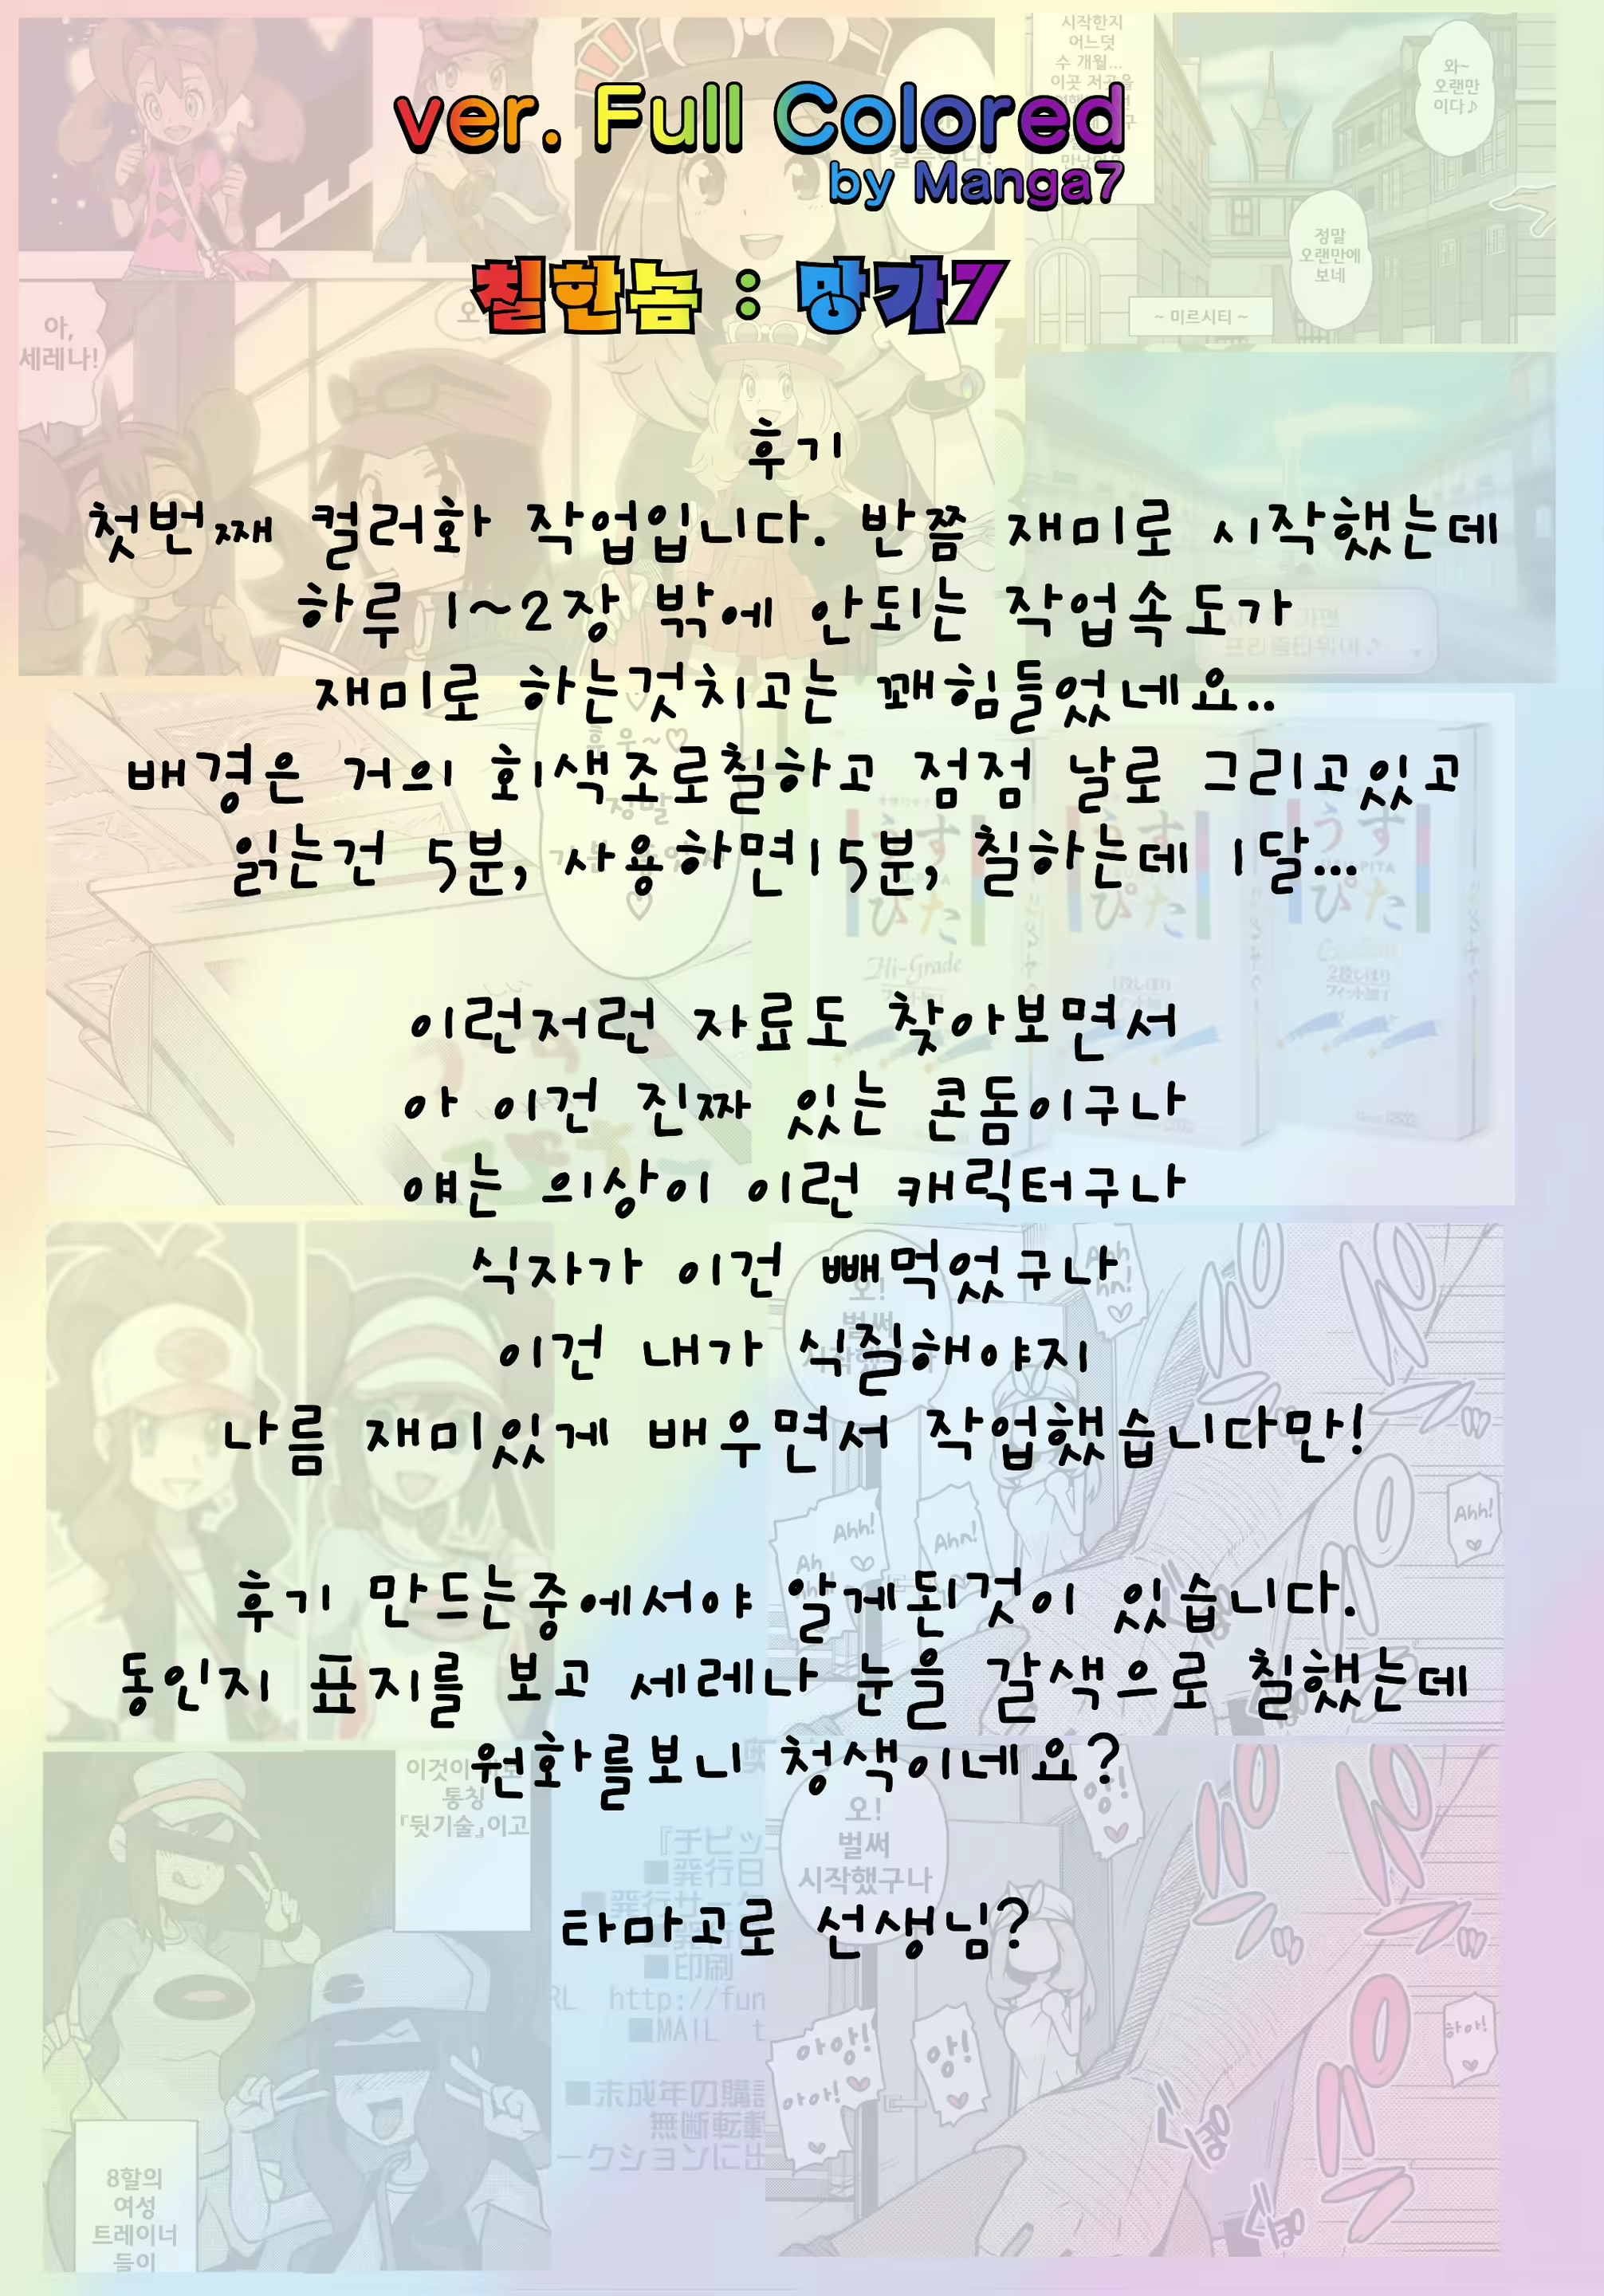 ver. Full Colored
by Manga7
칠한놈 : 망가7
후기
첫번째 컬러화 작업입니다. 반쯤 재미로 시작했는데
하루 1~2장 밖에 안되는 작업속도가
재미로 하는것치고는 꽤힘들었네요..
배경은 거의 회색조로칠하고 점점 날로 그리고있고
읽는건 5분, 사용하면15분, 칠하는데 1달...
이런저런 자료도 찾아보면서
아 이건 진짜 있는 콘돔이구나
얘는 의상이 이런 캐릭터구나
식자가 이건 빼먹었구나
이건 내가 식질해야지
나름 재미있게 배우면서 작업했습니다만!
후기 만드는중에서야 알게된것이 있습니다.
동인지 표지를 보고 세레나 눈을 갈색으로 칠했는데
원화를보니 청색이네요?
타마고로 선생님?
시작한지
어느덧
수 개월...
와~
오랜만
이다♪
정말
오랜만에
보네
~ 미르시티 ~
아,
세레나!
Hi-Grade
Ahh!
Ahh!
Ahh!
통칭
「뒷기술」이고
오!
벌써
시작했구나
앙!
아앙!
아아!
앙!
하아!
8할의
여성
트레이너
들이
■発行日
■印刷
http://fun
■MAIL
■未成年の購
無断転載